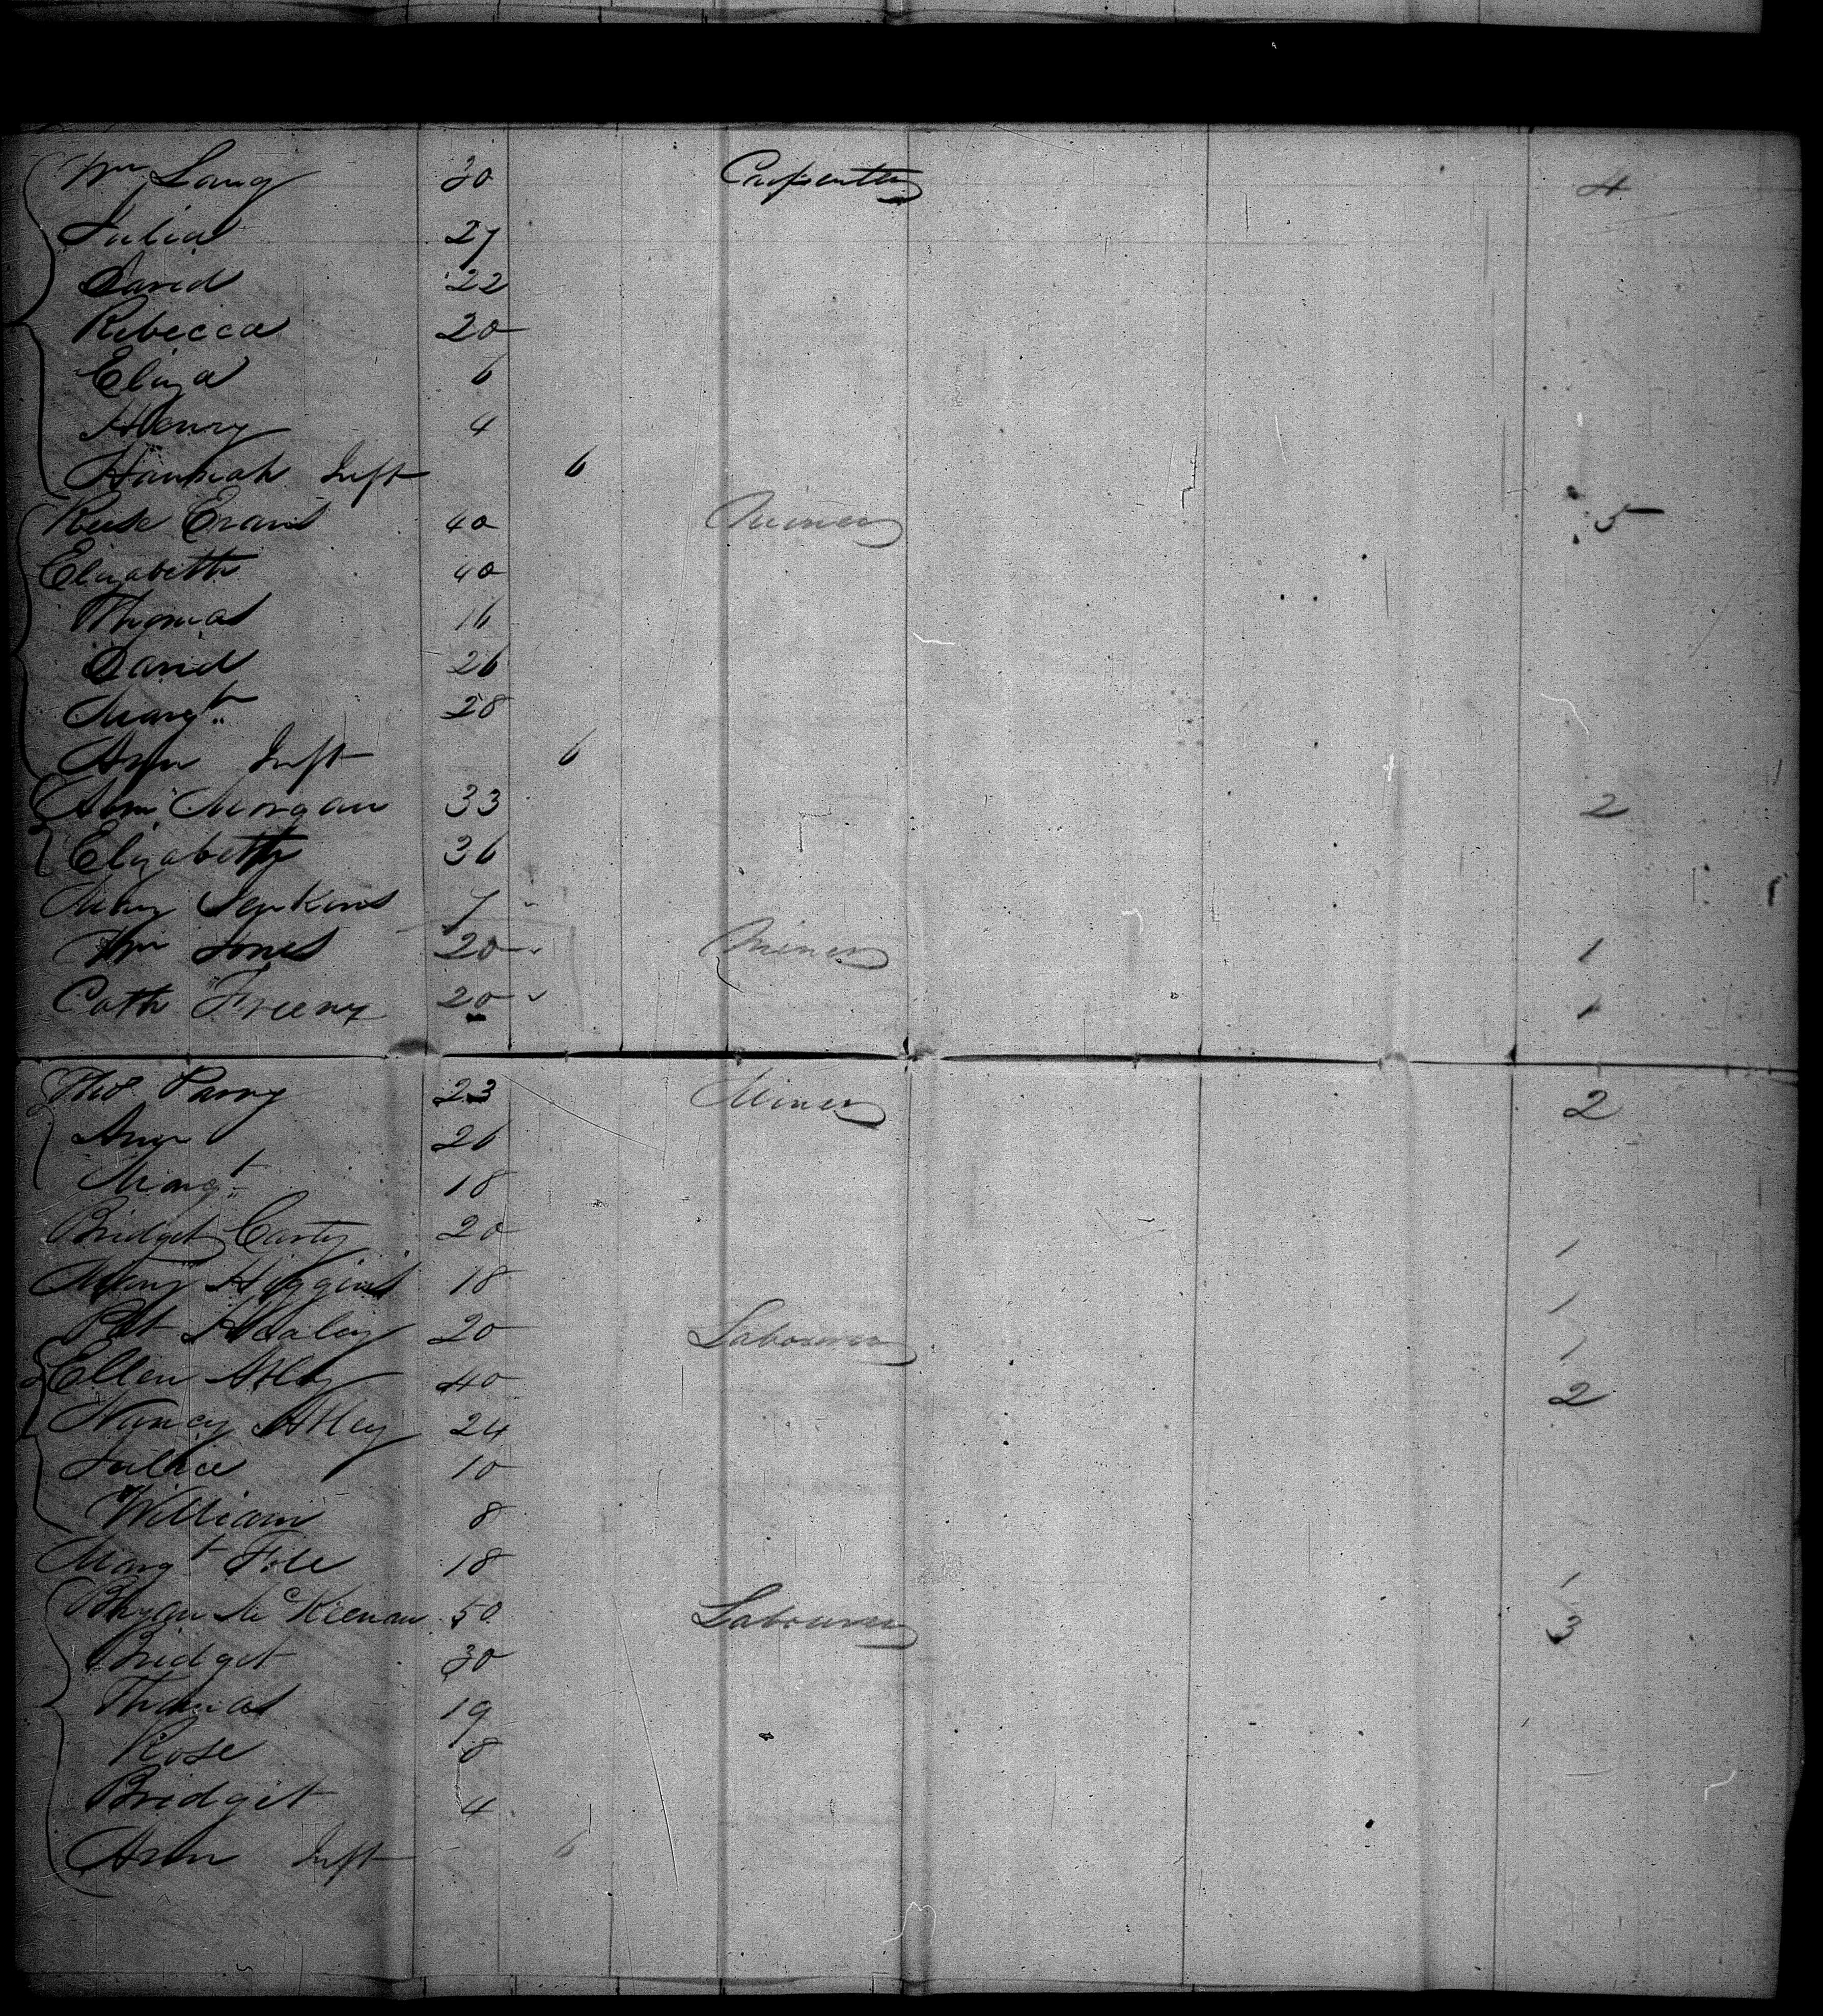 Wm Lang 30 Carpenter 4
Julia 27
David 22
Rebecca 20
Eliza 6
Henry 4
Hannah Inft 6
Reese Evans 40 Miner 5
Elizabeth 40
Thomas 16
David 26
Margt 28
Ann Inft 6
Ann Morgan 33 2
Elizabeth 36
Mary Jenkins 7
Wm Jones 20 Miner 1
Cath Freeny 20 1
Thos Parry 23 Miner 2
Ann 26
Margt 18
Bridget Carty 20 1
Mary Higgins 18 1
Pat Healey 20 Labourer 1
Ellen 40 2
Nancy 24
Julia 10
William 8
Margt 18 1
Bryan McKeenan 50 Labourer 3
Bridget 30
Thomas 19
Rose 8
Bridget 4
Ann Inft 6